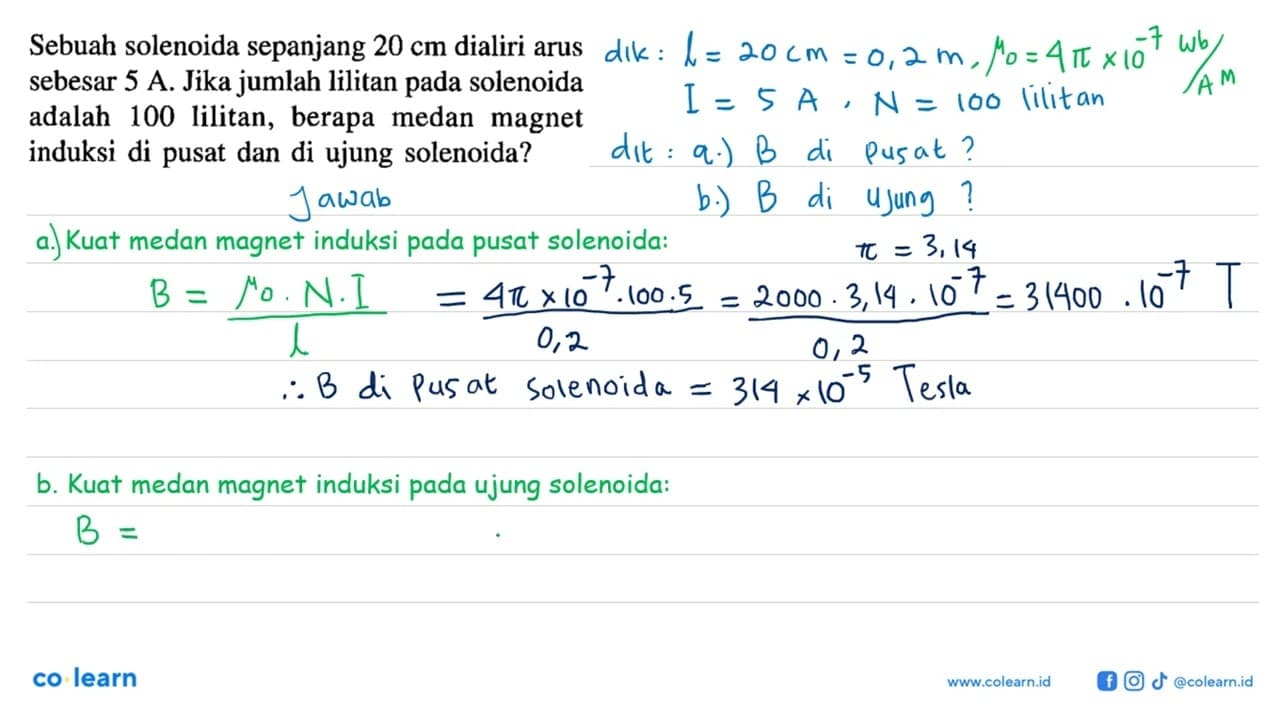 Sebuah solenoida sepanjang 20 cm dialiri arus
sebesar 5 A. Jika jumlah lilitan pada solenoida
adalah 100 lilitan, berapa medan magnet
induksi di pusat dan di ujung solenoida?
dik : l = 20 cm = 0,2 m, μ₀ = 4π × 10⁻⁷ Wb/AM
I = 5 A , N = 100 lilitan
dit : a.) B di pusat ?
b.) B di ujung ?
Jawab
a.) Kuat medan magnet induksi pada pusat solenoida:
π = 3,14
B = μ₀ . N . I / l = 4π × 10⁻⁷ . 100 . 5 / 0,2 = 2000 . 3,14 . 10⁻⁷ / 0,2 = 31400 . 10⁻⁷ T
∴ B di pusat solenoida = 314 × 10⁻⁵ Tesla
b. Kuat medan magnet induksi pada ujung solenoida:
B =
co learn
www.colearn.id
@colearn.id